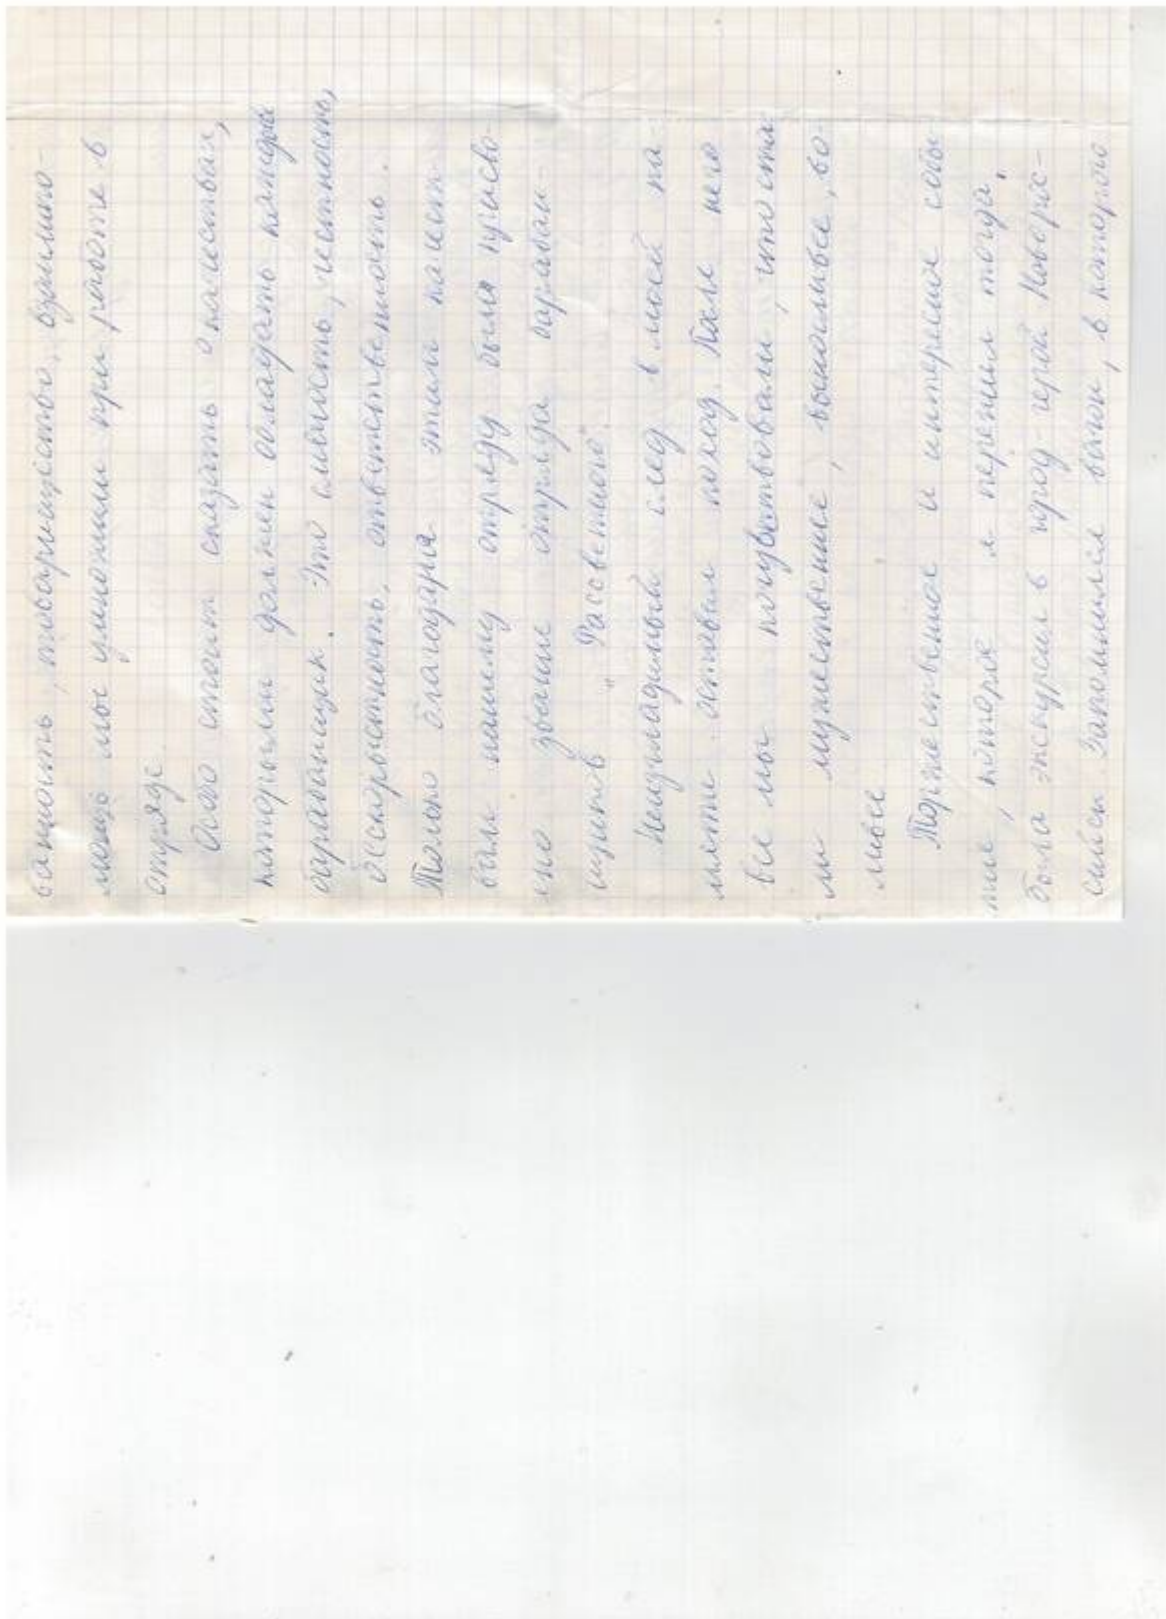 ванность, товарищество, взаимо-
мощь мы умножили при работе в
отряде
Особо стоит сказать о качествах,
которыми должен обладать каждый
барабанщик. Это смелость, честность,
бескорыстность, ответственность.
Только благодаря этим качест-
вам нашему отряду было присво
ено звание отряда барабан-
щиков "Рассветного".
Неизгладимый след в моей па-
мяти оставил поход. После него
все мы почувствовали, что ста
ли мужественнее, выносливее, во
левее
Торжественное и интересное собы
тие, которое я пережил тогда,
была экскурсия в город герой Новорос-
сийск. Запомнился вагон, в которого